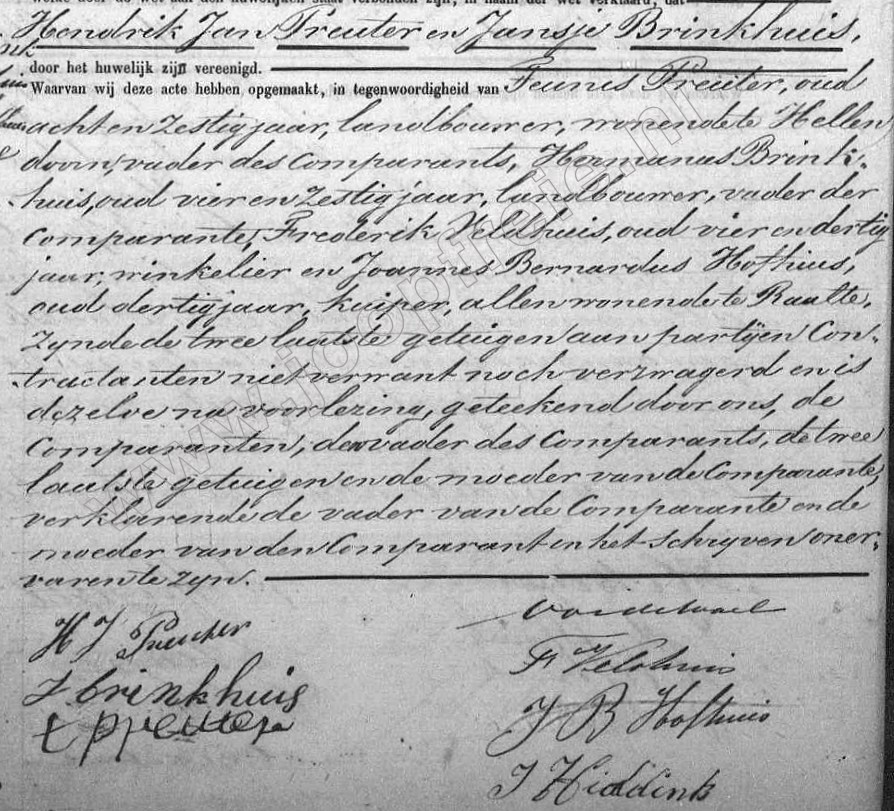 welke door de wet aan den huwelijken staat verbonden zijn, in naam der wet verklaard, dat
Hendrik Jan Preuter en Jansje Brinkhuis,
door het huwelijk zijn vereenigd.
Waarvan wij deze acte hebben opgemaakt, in tegenwoordigheid van Teunis Preuter, oud
acht en Zestig jaar, landbouwer, wonende te Hellen
doorn, vader des Comparants, Hermanus Brink-
huis, oud vier en Zestig jaar, landbouwer, vader der
Comparante, Frederik Veldhuis, oud vier en dertig
jaar, winkelier en Joannes Bernardus Hofhuis,
oud dertig jaar, kuiper, allen wonende te Raalte,
Zynde de twee laatste getuigen aan partyen Con-
tractanten niet verwant noch verzwagerd en is
dezelve na voorlezing, geteekend door ons, de
Comparanten, den vader des Comparants, de twee
laatste getuigen en de moeder van de Comparante,
verklarende de vader van de Comparante en de
moeder van den Comparant in het schryven oner-
varen te zyn.
H J Preuter
J Brinkhuis
t preuter
F Veldhuis
J B Hofhuis
J Hiddink
www.jooptreite.nl